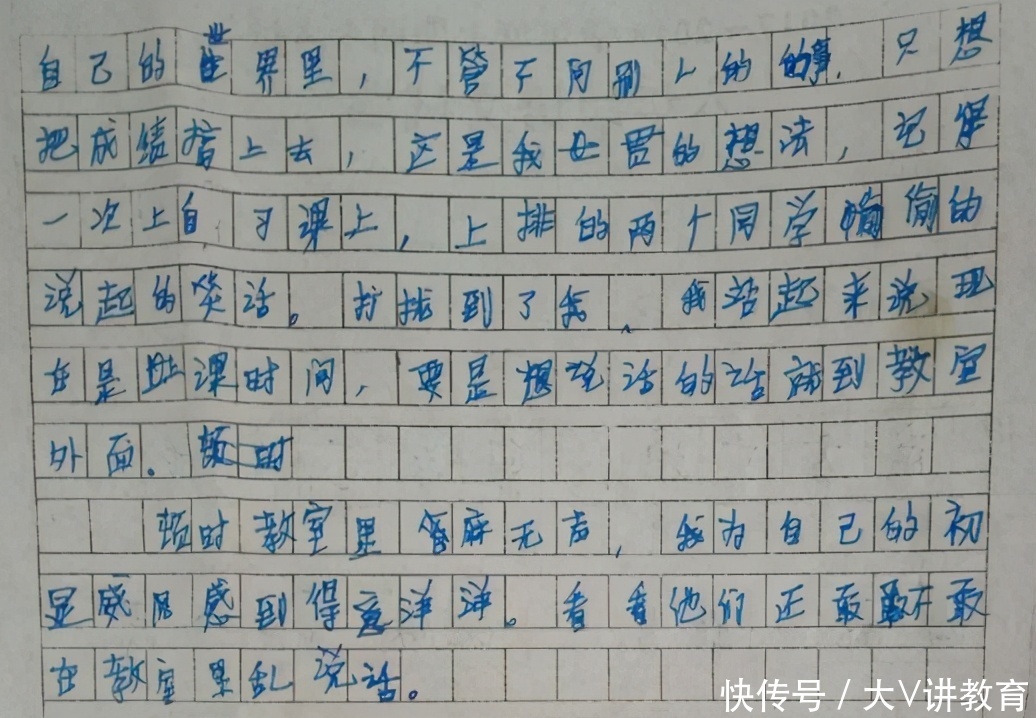 自己的世界里，不管不问别人的的事，只想
把成绩搞上去，这是我一贯的想法，记得
一次上自习课上，上排的两个同学偷偷的
说起的笑话。打扰到了我、我站起来说现
在是上课时间，要是想说话的话就到教室
外面。顿时
顿时教室里鸦雀无声，我为自己的初
显威风感到得意洋洋。看看他们还敢敢不敢
在教室里乱说话。
快传号 / 大V讲教育